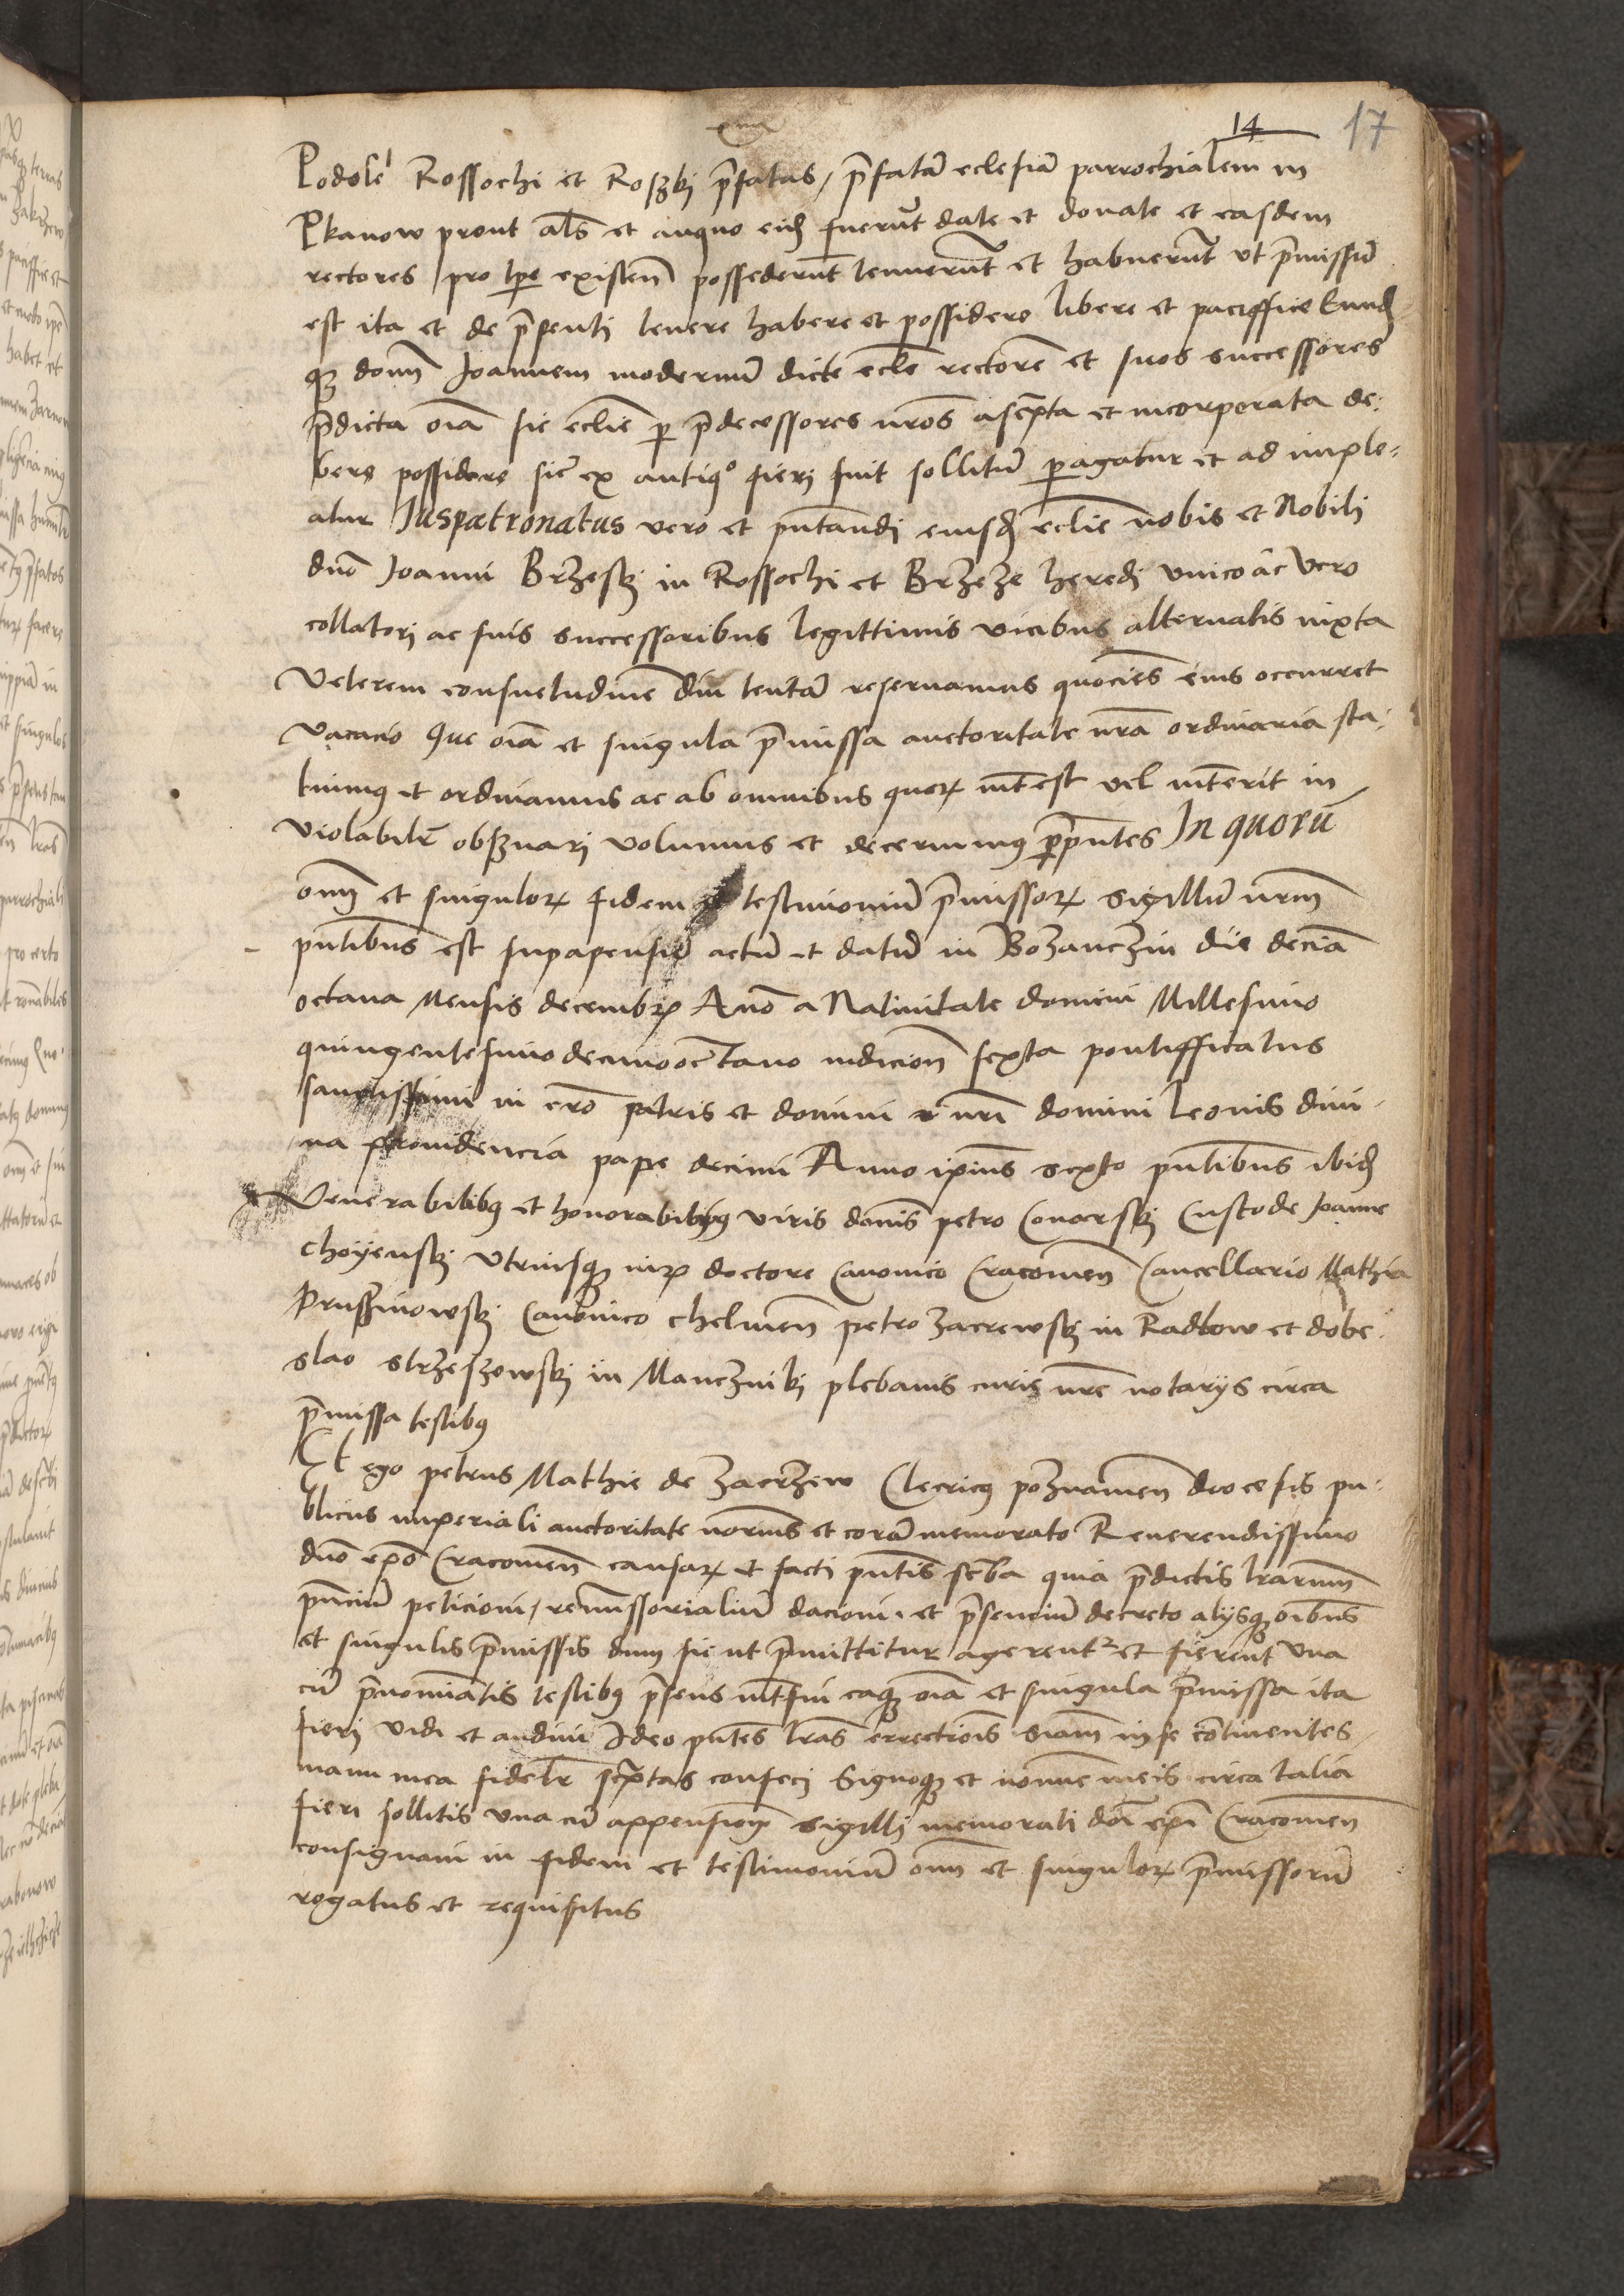 14
17
Podole Rossochi et Roszki p̄fatas, p̄fatā eclesiā parrochialem in
Pkanow prout al̄s et antiquo eid. fuerūt date et donate et easdem
rectores pro tp̄e existen̄ possederūt tenuerūt et habuerūt ut p̄missū
est ita et de p̄senti tenere habere et possidere libere et paciffice Eund
q3 donū Joannem modernū dicte ecl̄e rectorē et suos successores
p̄dicta oīa sic ecl̄ie p p̄decessores nr̄os ascr̄pta et incorporata de:
bere possidere sic̄ ex antiqº fieri fuit sollitū pagatur et ad imple=
atur Juspatronatus vero et pn̄tandi eiusd ecl̄ie nobis et Nobili
dn̄o Joanni Brzeski in Rossochi et Brzeze heredi unico ac vero
collatori ac suis successoribus legittimis vicibus alternatis iuxta
veterem consuetudinē diu tentā reseruamus quociēs eius occurret
vacacio Que oīa et singula p̄missa auctoritate nr̄a ordinaria sta:
tuimus et ordinamus ac ab omnibus quorꝝ int̄est vel int̄erit in
violabilr̄ obseruari volumus et decernimus p̄ pn̄tes In quorū
oniū et singulorꝝ fidem et testimoniū p̄missorꝝ sigillū nr̄m
pn̄tibus est subapensū actū et datū in Bozanczin die deciā
octaua Mensis decembrꝭ Anō a Natiuitate domini Millesimo
quingentesimo decimooctauo indicion̄ sexta pontifficatus
sanctissimi in cr̄o patris et domini nr̄i domini Leonis diui:
na prouidencia pape decimi Anno ipsius sexto pn̄tibus ibid
Venerabilibus et honorabilibus viris donīs petro Conarski Custode Joanne
choyenski utriusq3 iurꝭ doctore Canonico Cracouien̄ Cancellario Mathia
Prussinowski Canonico chelmen̄ petro zacrewski in Radlow et dobe:
slao strzeszowski in Manczniki plebanis curie nr̄e notarijs circa
p̄missa testibus
Et ego petrus Mathie de zacrzew Clericus poznanien̄ diocesis pu:
blicus imperiali auctoritate notarius et corā memorato Reuerendissimo
dn̄o ep̄o Cracouien̄ causarꝝ et facti pn̄tis scr̄ba quia p̄dictis lrārum
pn̄ciū peticioni, remissorialiū dacioni et p̄senciū decreto alijsq3 oībus
et singulis p̄missis dum sic ut p̄mittitur agerentur et fierent una
cū p̄nomīatis testibus p̄sens int̄fui eaq3 oīa et singula p̄missa ita
fieri vidi et audiui Ideo pn̄tes lrās errectionīs siam in se continentes
manu mea fidelr̄ scr̄ptas confeci Signoq3 et nomine meis circa talia
fieri sollitis una cū appensione sigilli memorati dn̄i ep̄i Cracouien̄
consignaui in fidem et testimoniū oniū et singulorꝝ p̄missorū
rogatus et requisitus